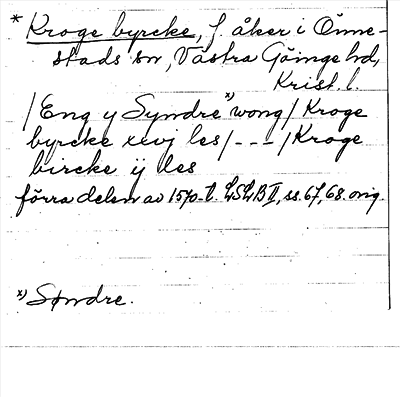 * Kroge byrcke, f. åker i Önne-
stads sn, Västra Göinge hd,
Krist. l.
/Eng y Syndre x) wong/ Kroge
byrcke xxvj les/---/Kroge
bircke ij les
förra delen av 1570-t. LSLB II, ss. 67, 68. orig.
x) Søndre.